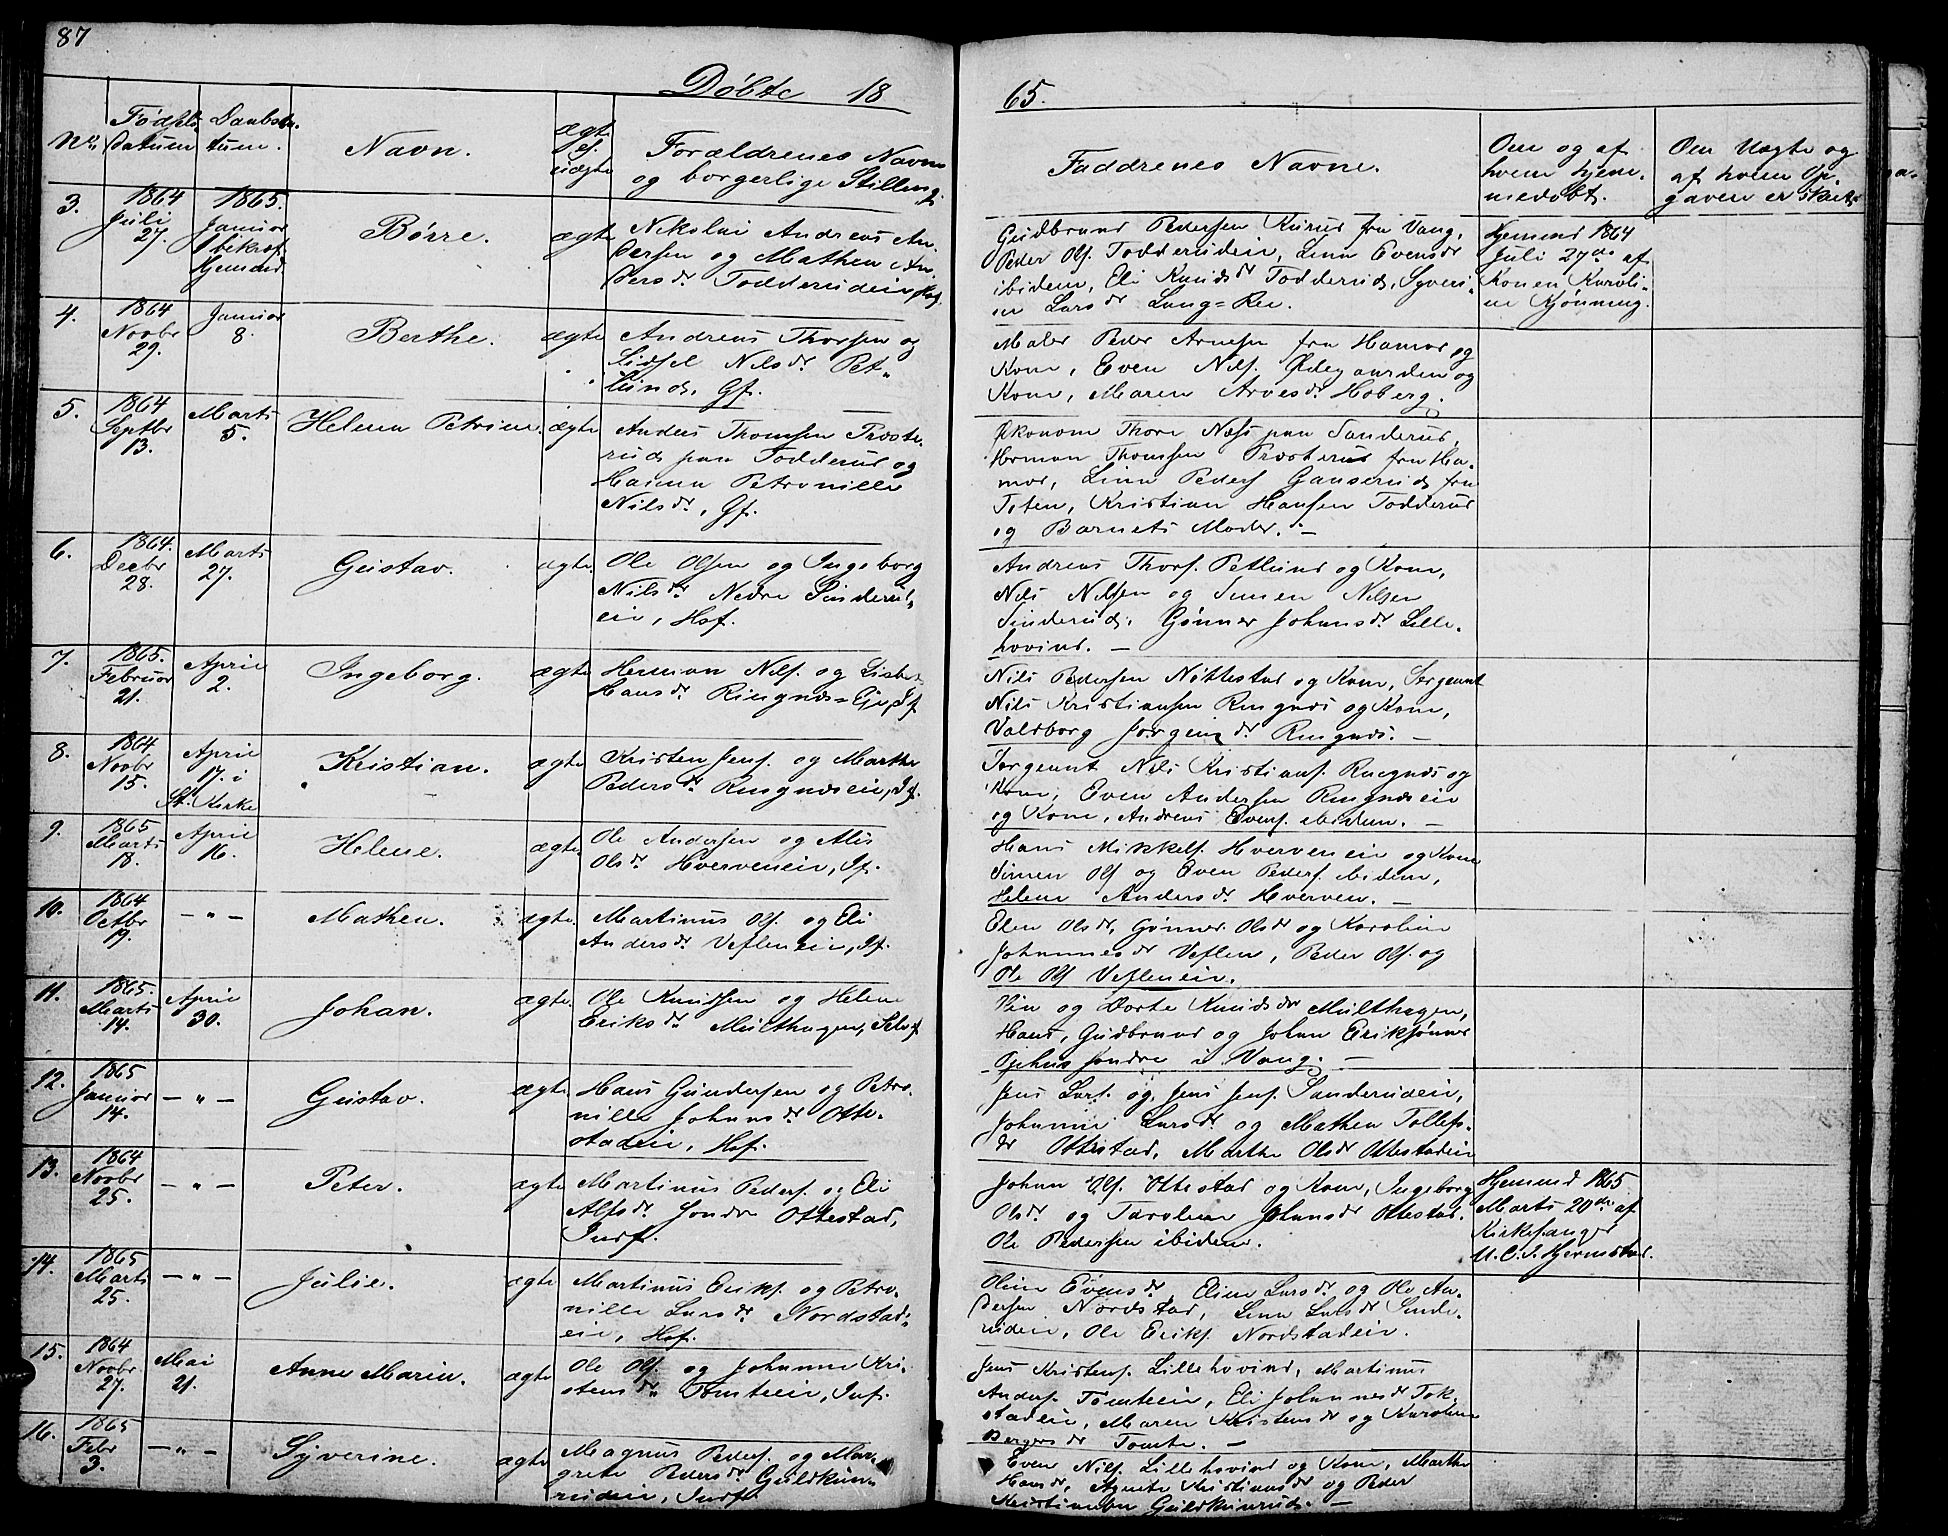 87
Døbte 18
65.
No.
Fødsels
datum
Daabsda-
tum.
Navn.
ægte
el.
uægte
Forældrenes Navne
og borgerlige Stilling.
Faddrenes Navne.
Om og af
hvem hjem-
medøbt.
Om Uægte og
af hvem Op-
gaven er skeet.
3.
1864
Juli
27.
1865.
Januar
1 bekræf.
hjemmed.
Børre.
ægte
Nikolai Andreas An-
dersen og Mathea An-
dersdr. Todderudeie, Hof.
Gudbrand Pedersen Kurud fra Vang,
Peder Ols. Todderudeie, Lina Evensdr
ibidem, Eli Knudsdr Todderud, Syveri-
ne Larsdr Lang-Ree.
Hjemmed 1864
Juli 27de af
Konen Karoli-
ne Kjønning.
4.
1864
Novbr
29.
Januar
8.
Berthe.
ægte
Andreas Thorsen og
Sidsel Nilsdr. Pet-
lund, Gf.
Maler Peder Arnesen fra Hamar og
Kone, Even Nils. Ødegaarden og
Kone, Maren Arnesdr. Hoberg.
5.
1864
Septbr
13.
Marts
5.
Helena Petrine.
ægte
Anders Thomsen Præste-
rud paa Todderud og
Hanna Petronille
Nilsdr., Gf.
Økonom Thore Næss paa Sanderud,
Herman Thomsen Præsterud fra Ha-
mar, Lina Peders Ganserud fra
Toten, Kristian Hansen Todderud
og Barnets Moder. –
6.
1864.
Decbr
28.
Marts
27.
Gustav.
ægte
Ole Olsen og Ingeborg
Nilsdr. Nedre Sinderud-
eie, Hof.
Andreas Thors. Petlund og Kone,
Nils Nilsen og Simen Nilsen
Sinderud, Gunner Johansdr. Lille-
hovind. –
7.
1865.
Februar
21.
April
2.
Ingeborg.
ægte
Herman Nils. og Lisbet
Hansdr Ringnæs-Eje, If.
Nils Pedersen Nøttestad og Kone, Sergeant
Nils Kristiansen Ringnæs og Kone,
Valborg Jørgensdr. Ringnæs. –
8.
1864.
Novbr
15.
April
17. i
St. Kirke
Kristian.
ægte
Kristen Jens. og Marthe
Pedersdr. Ringnæseie, If.
Sergeant Nils Kristians. Ringnæs og
Kone, Even Andersen Ringnæseie
og Kone, Andreas Evens. ibidem. –
9.
1865
Marts
18.
April
16.
Helene.
ægte
Ole Andersen og Alis
Olsdr. Hverveneie, If.
Hans Mikkels. Hverveneie og Kone
Simen Ols og Even Peders. ibidem,
Helene Andersdr. Hverven. –
10.
1864
Octbr
19.
– " –
Mathea.
ægte
Martinus Ols. og Eli
Andersdr. Vefleneie, If.
Elen Olsdr, Gunner Olsdr og Karoline
Johannesdr Veflen, Peder Ols. og
Ole Ols Vefleneie.
11.
1865.
Marts
14.
April
30.
Johan.
ægte
Ole Knudsen og Helene
Eriksdr. Multhagen, Selvf.
Pia og Dorte Knudsdr Multhagen,
Hans, Gudbrand og Johan Eriksønner
Ophus søndre i Vang. –
12.
1865
Januar
14.
– " –
Gustav.
ægte
Hans Gundersen og Petro-
nille Johansdr Otte-
stadeie, Hof.
Jens Lars. og Jens Jens. Sanderudeie,
Johanne Larsdr. og Mathea Tollefs-
dr Ottestad, Marthe Olsdr Ottestadeie
13.
1864
Novbr
25.
– " –
Peter.
ægte
Martinus Peders. og Eli
Alfsdr. Søndre Ottestad,
Inds.
Johan Ols. Ottestad og Kone, Ingeborg
Olsdr. og Karoline Johansdr Ottestad.
Ole Pedersen ibidem.
Hjemmed 1865
Marts 20de af
Kirkesanger
M.C.S. Hjermstad.
14.
1865
Marts
25.
– " –
Julie.
ægte
Martinus Eriks. og Petro-
nille Larsdr. Nordstad-
eie, Hof.
Oline Evensdr. Eline Larsdr. og Ole An-
dersen Nordstad, Lina Larsdr Sinde-
rudeie, Ole Eriks. Nordstadeie.
15.
1864
Novbr
27.
Mai
21.
Anne Marie.
ægte
Ole Ols. og Johanne Kri-
stensdr. Tomteeie, Inds.
Jens Kristens. Lillehovind, Martinus
Anders. Tomteeie, Eli Johannesdr Tok-
stadeie, Maren Kristensdr og Karoline
Bergersdr Tomte. –
16.
1865
Febr
3.
– " –
Syverine.
ægte
Magnus Peders. og Mar-
grete Pedersdr Guldkun-
rudeie, Inds.
Even Nils. Lillehovind og Kone, Marthe
Hansdr, Agnete Kristiansdr og Peder
Kristiansen Guldkunrud. –